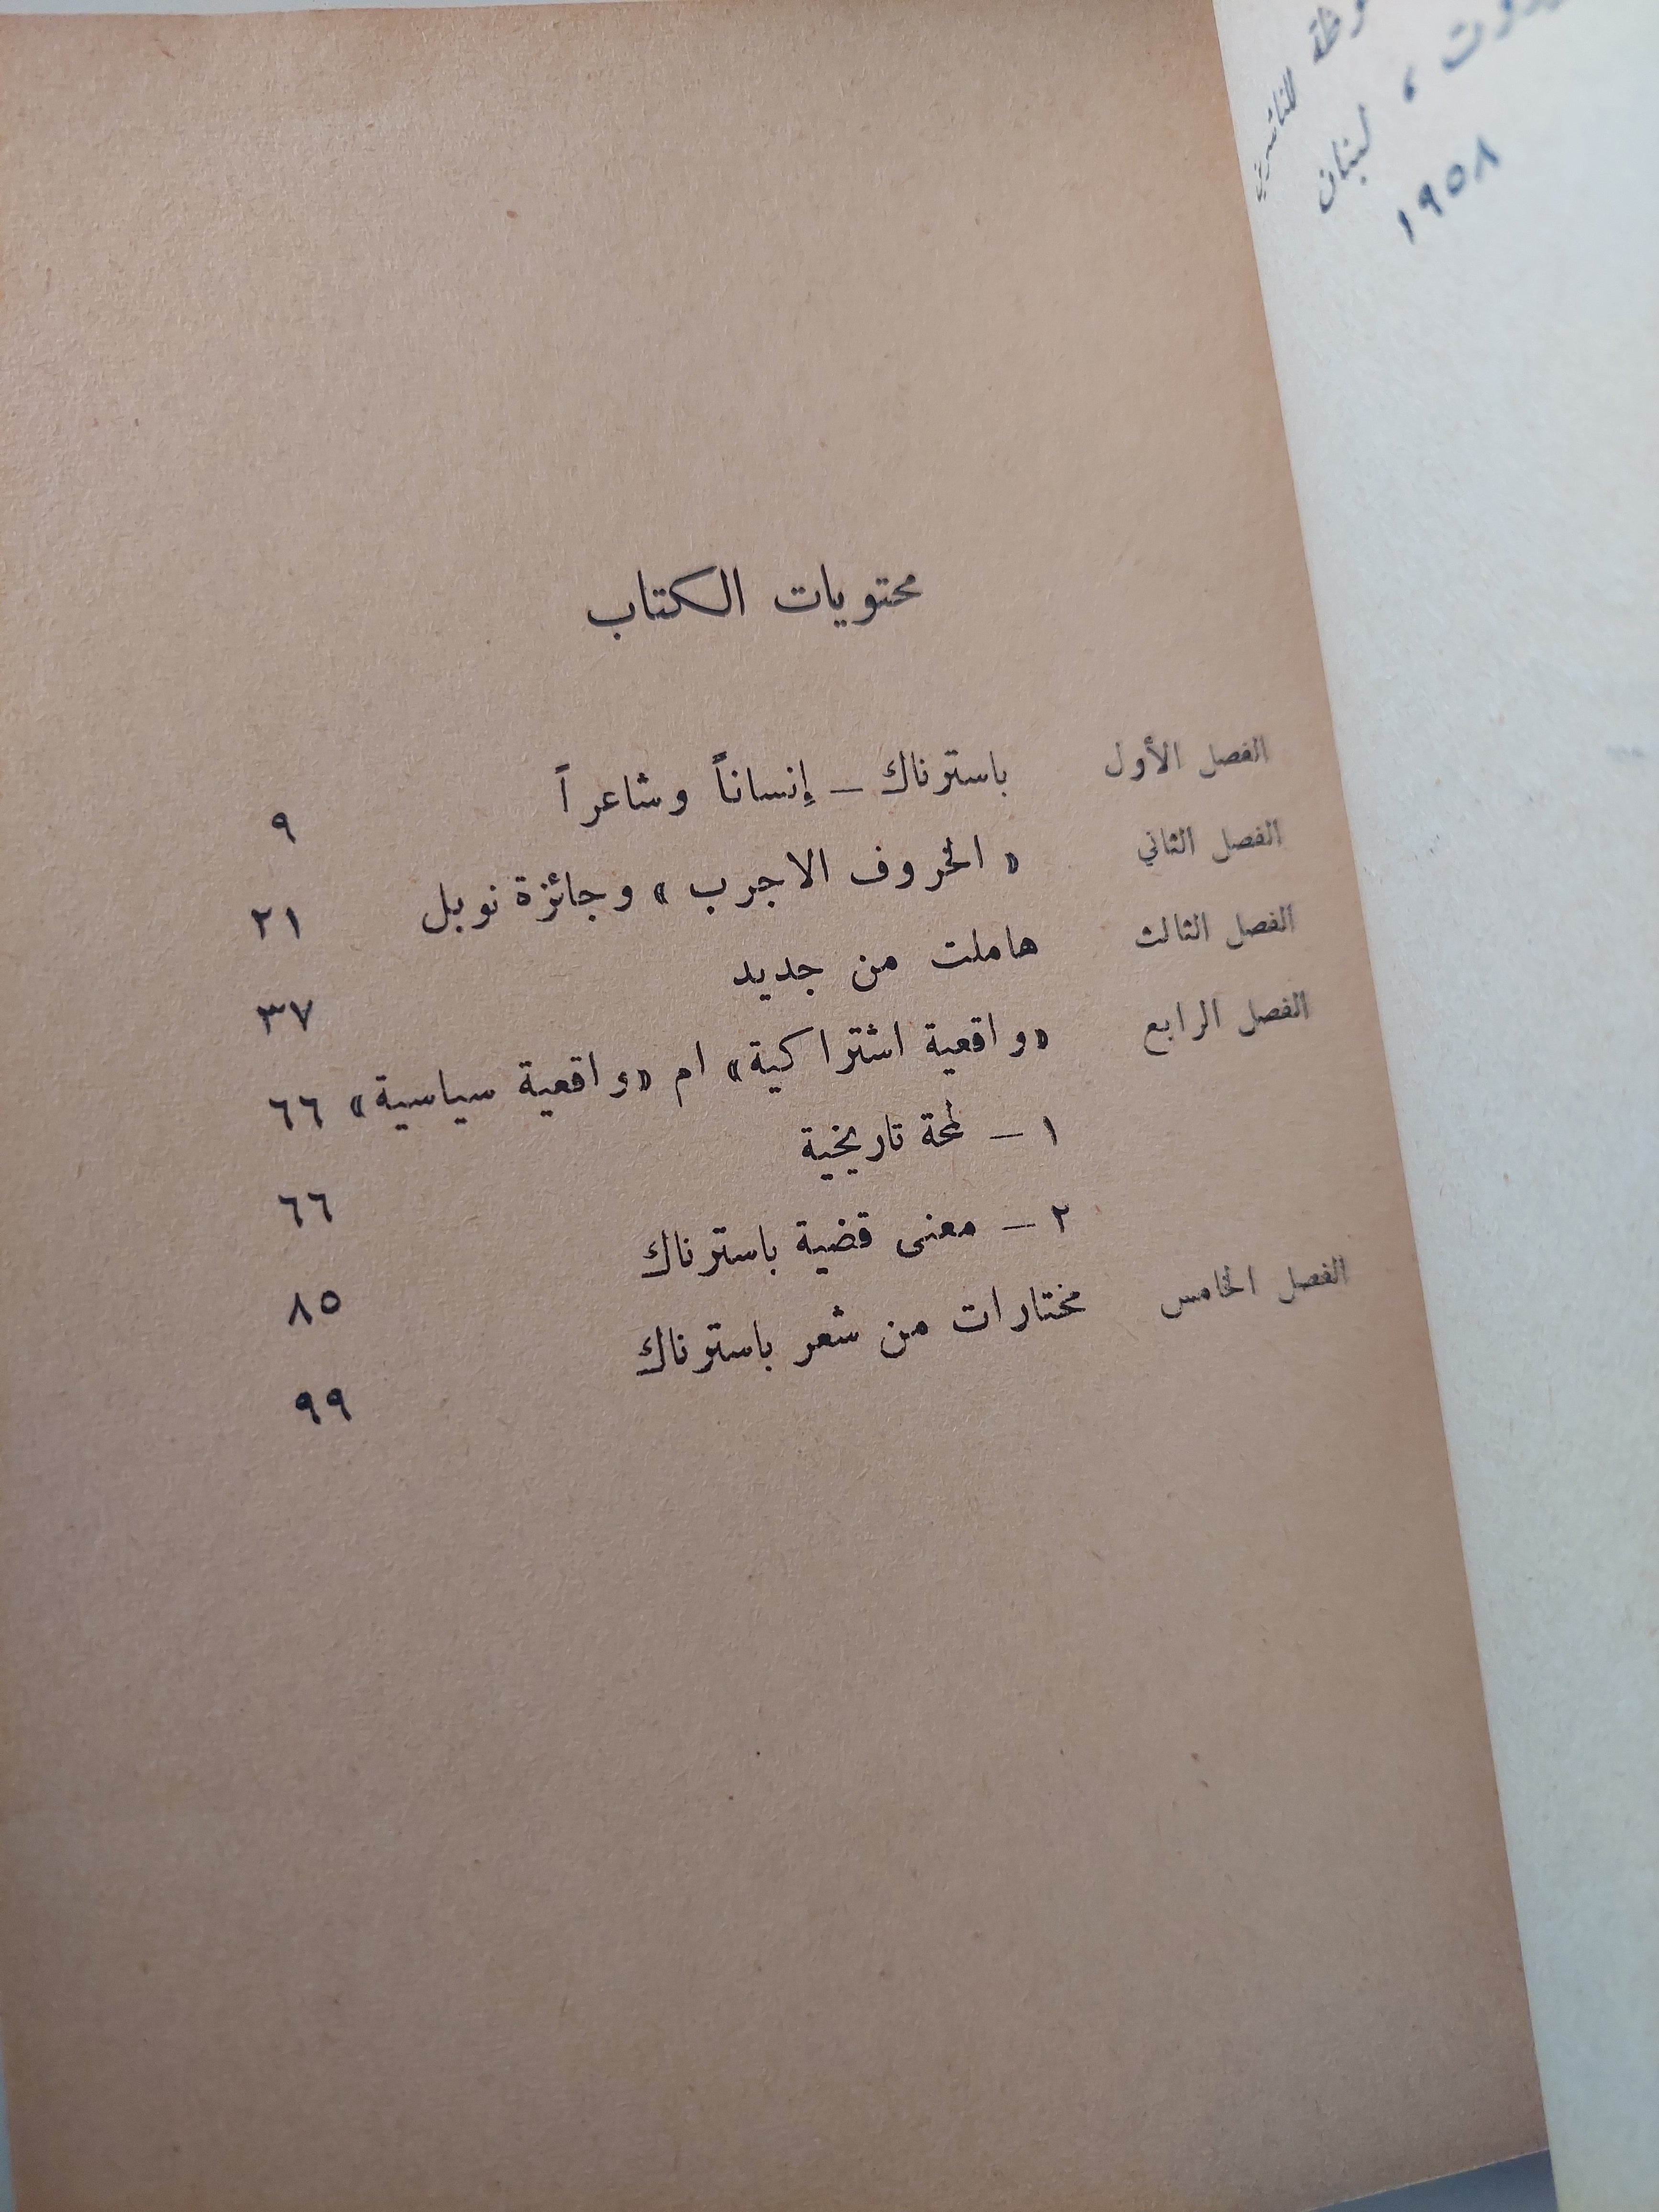 محتويات الكتاب
الفصل الأول باسترناك – إنساناً وشاعراً ٩
الفصل الثاني « الخروف الاجرب » وجائزة نوبل ٢١
الفصل الثالث هاملت من جديد ٣٧
الفصل الرابع «واقعية اشتراكية» ام «واقعية سياسية» ٦٦
١ – لمحة تاريخية ٦٦
٢ – معنى قضية باسترناك ٨٥
الفصل الخامس مختارات من شعر باسترناك ٩٩
للناشرين
، لبنان
١٩٥٨